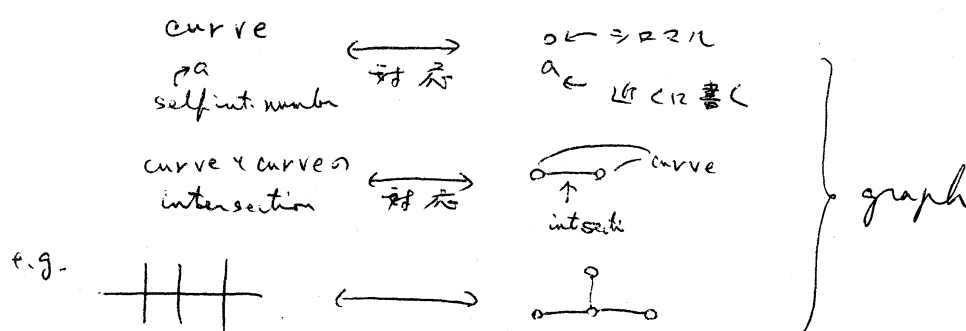 curve ⟷ 対応 o ← シロマル
a self int. number a ← 近くに書く
curve と curve の intersection ⟷ 対応 curve
graph
e.g.